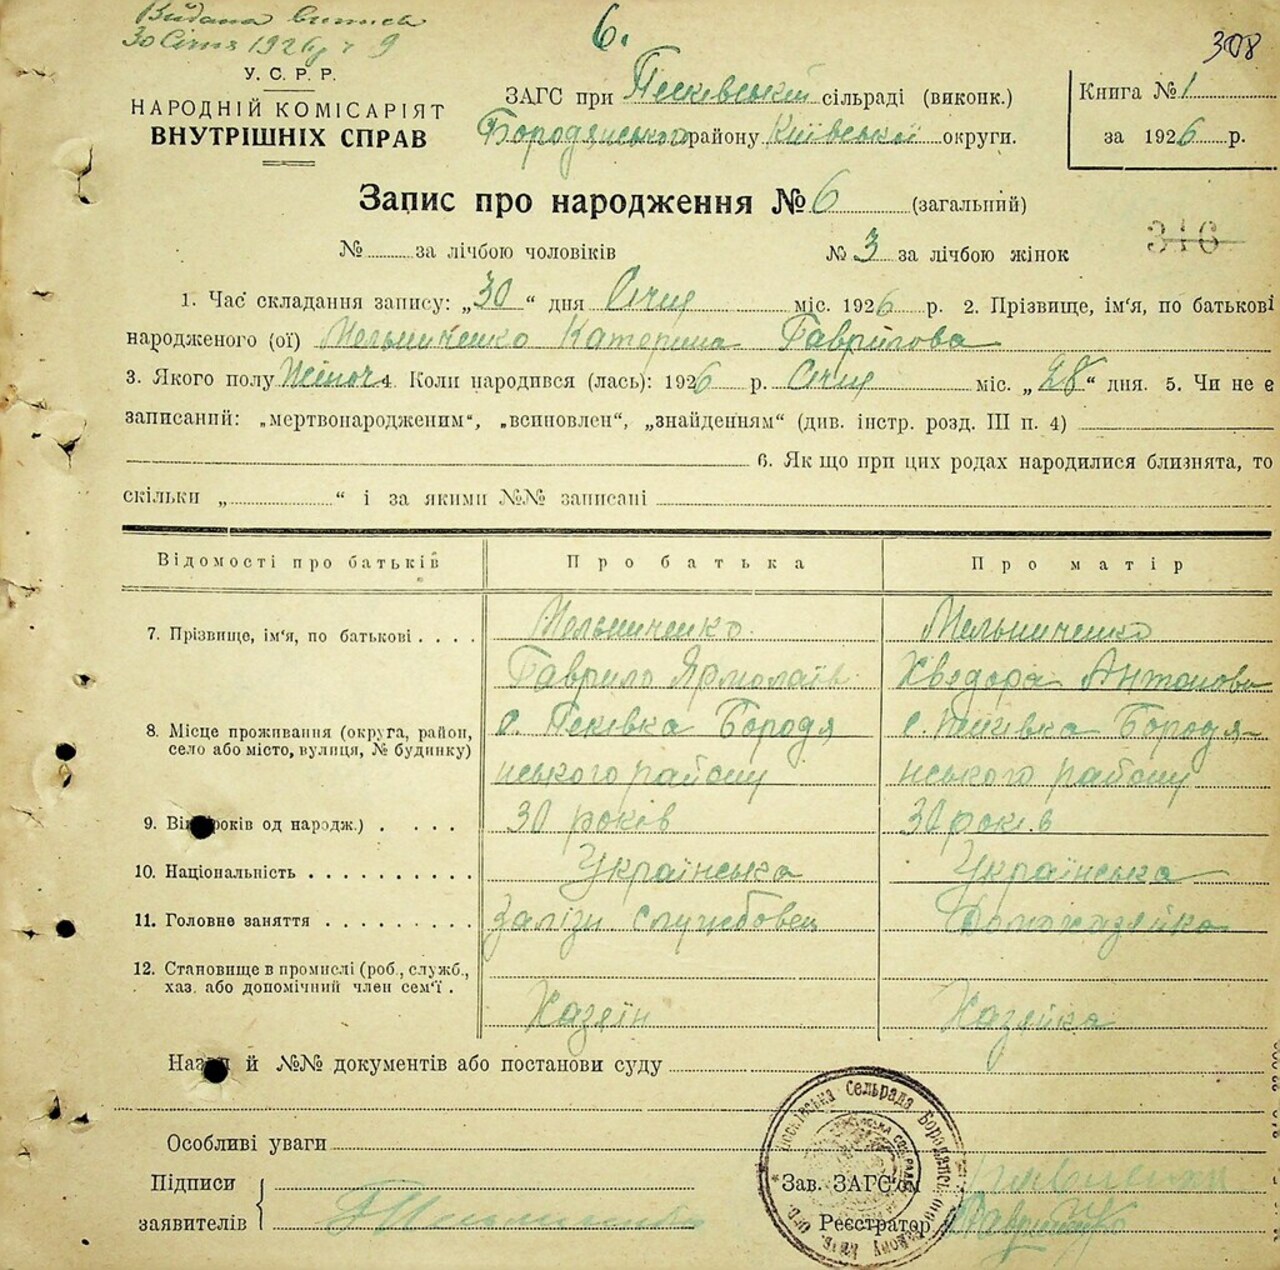 Видана виписка
30 Січня 1926 р. № 9
6.
308
У. С. Р. Р.
НАРОДНІЙ КОМІСАРІЯТ
ВНУТРІШНІХ СПРАВ
ЗАГС при Пісківській сільраді (виконк.)
Бородянського району Київської округи.
Книга № 1
за 1926 р.
Запис про народження № 6 (загальний)
№ за лічбою чоловіків
№ 3 за лічбою жінок
346
1. Час складання запису: „30“ дня Січня міс. 1926 р. 2. Прізвище, ім‘я, по батькові
народженого (ої) Мельниченко Катерина Гаврилова
3. Якого полу Жіноч 4. Коли народився (лась): 1926 р. Січня міс. „28“ дня. 5. Чи не є
записаний: „мертвонародженим“, „всиновлен“, „знайденням“ (див. інстр. розд. III п. 4)
6. Якщо при цих родах народилися близнята, то
скільки „ “ і за якими №№ записані
Відомості про батьків
Про батька
Про матір
7. Прізвище, ім‘я, по батькові . . . .
Мельниченко
Гаврило Ярмолаїв
Мельниченко
Хведора Антонова
8. Місце проживання (округа, район,
село або місто, вулиця, № будинку)
с. Псківка Бородя
нського району
с. Пісківка Бородя-
нського району
9. Вік років од народж.) . . . .
30 років
30 років
10. Національність . . . . . . . . . .
Українська
Українська
11. Головне заняття . . . . . . . . .
Залізн. службовец
Домохазяйка
12. Становище в промислі (роб., служб.,
хаз. або допомічний член сем‘ї .
Хазяїн
Хазяйка
Назви й №№ документів або постанови суду
Особливі уваги
Підписи
заявителів
Г Мельниченко
Зав. ЗАГС‘ом
Реєстратор
Пісківська Сельрада Бородянського району Київ. Окр.